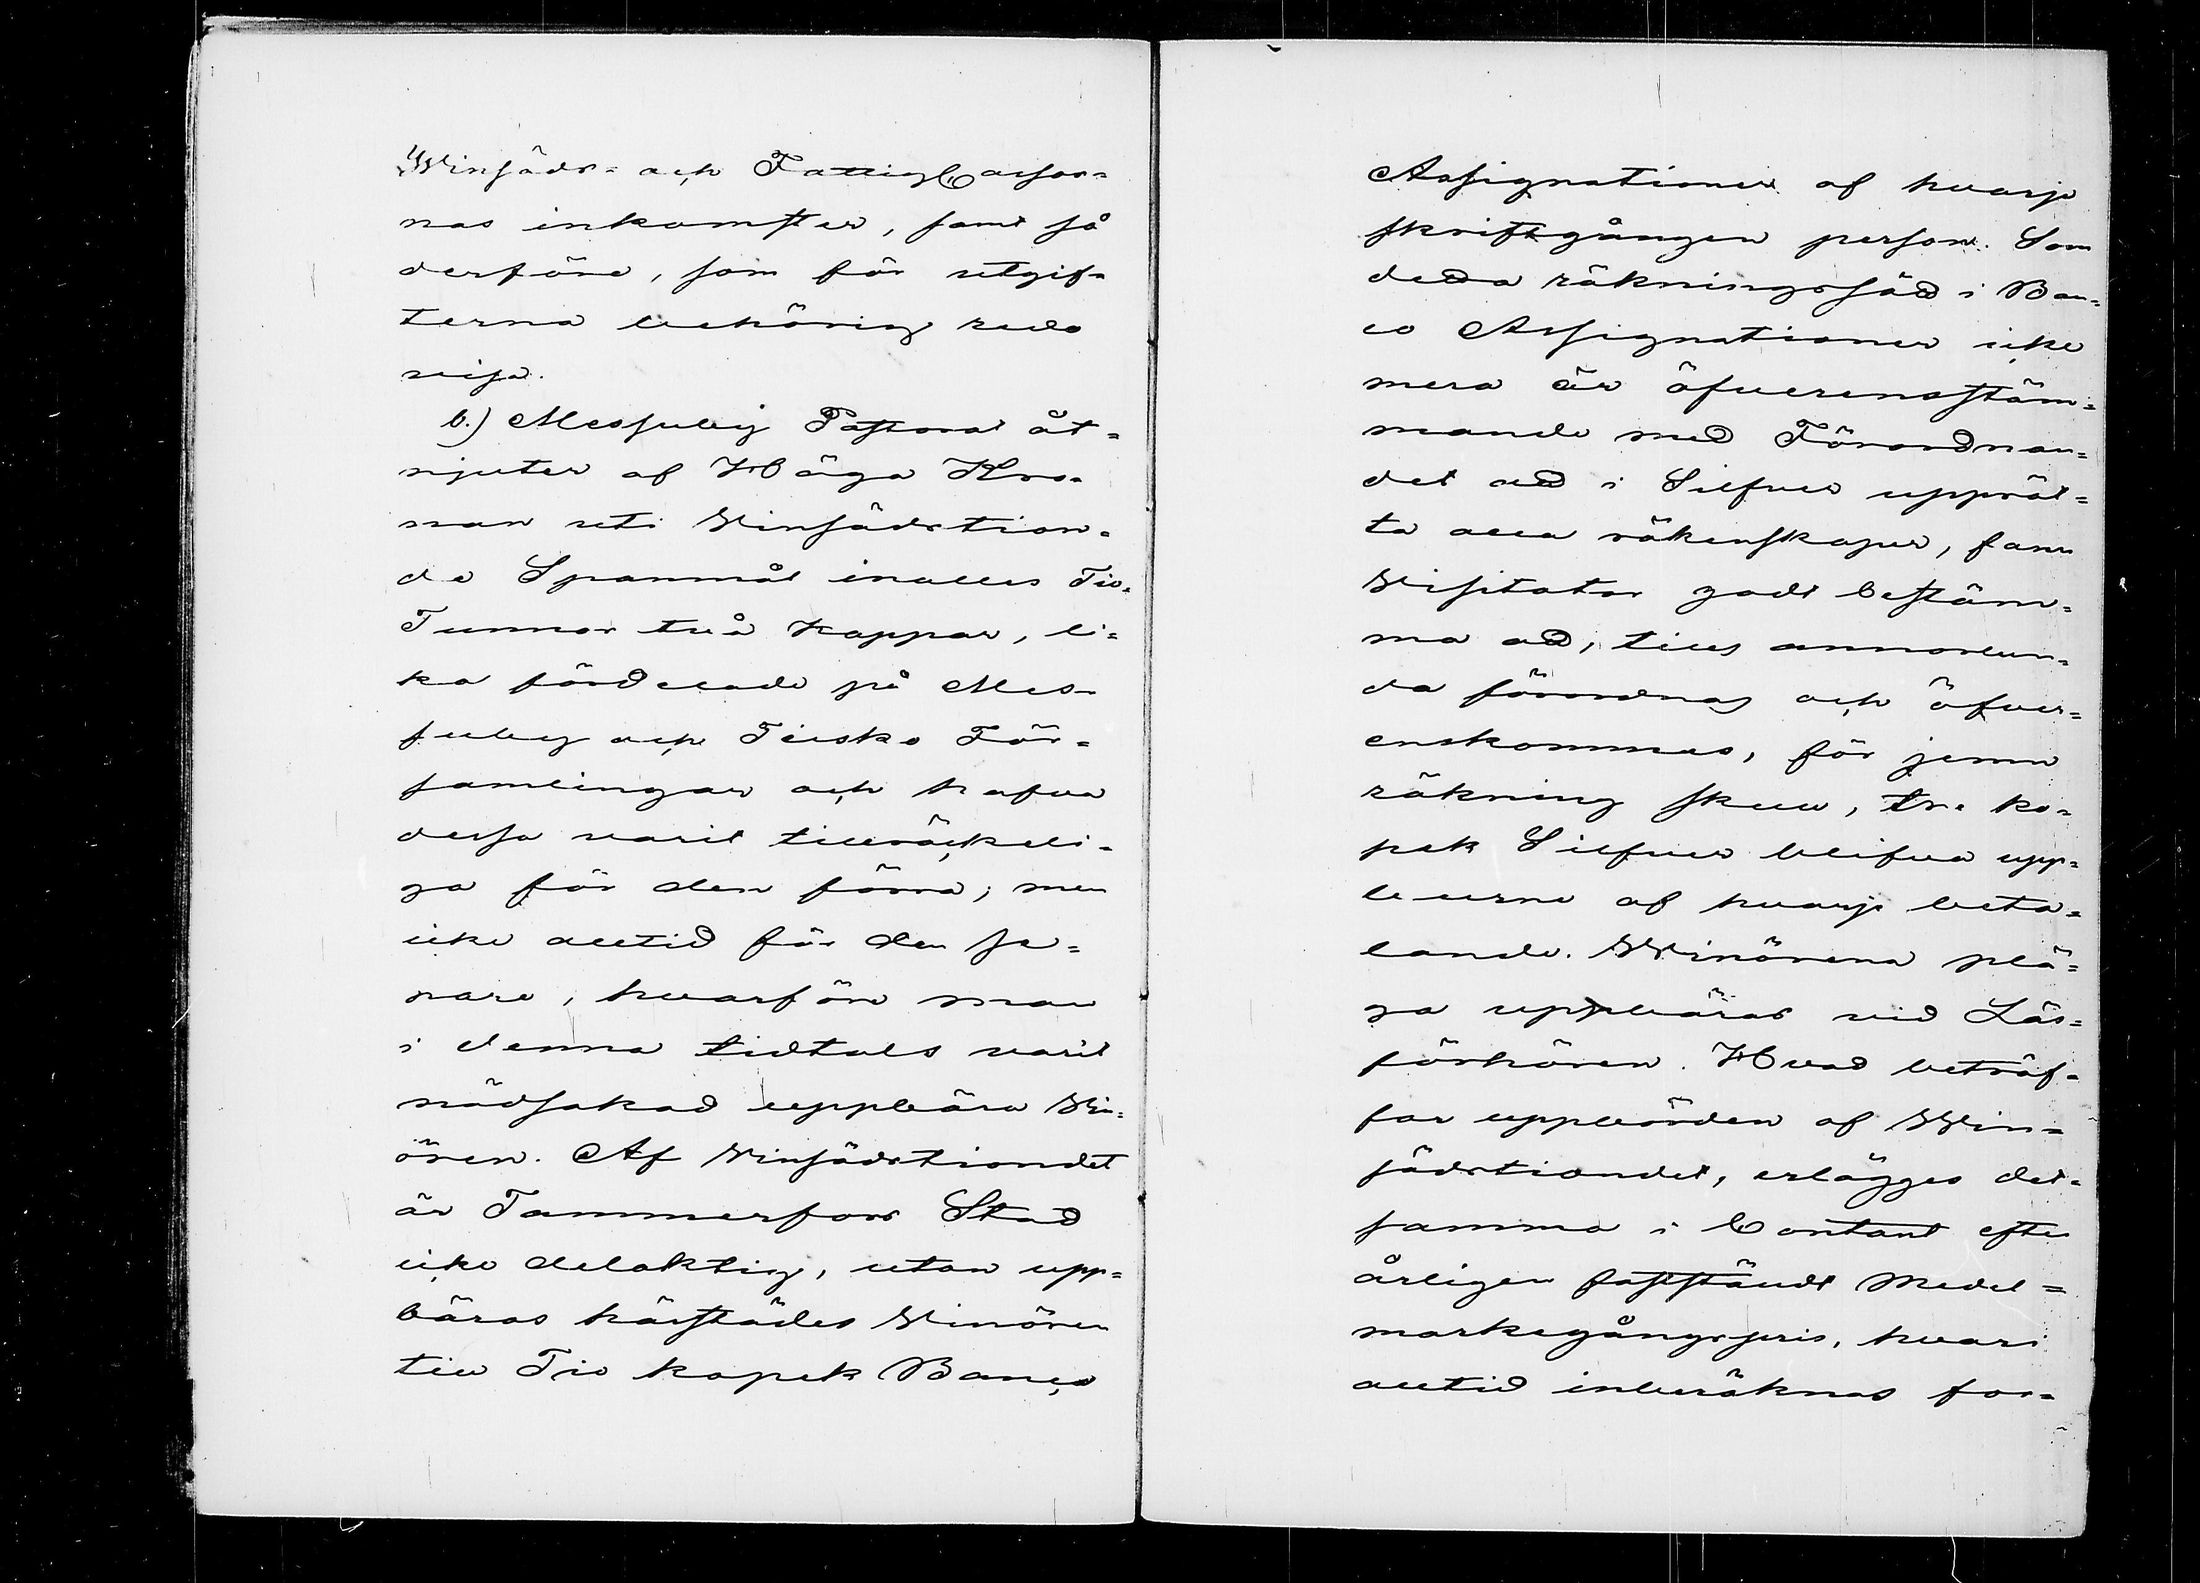 Winsäds- och FattigCassor-
nas inkomster, samt så
derföre, som för utgif-
terna behörig redo
visa.
b.) Messuby Pastorat åt-
njuter af Höga Kro-
nan uti Vinsädstion-
de Spanmål inalles Tio
Tunnor två kappar, li-
ka fördelade på Mes-
suby och Teisko För-
samlingar och hafva
dessa varit tillräckeli-
ga för den förra; men
icke alltid för den se-
nare, hvarföre man
i denna tidtals varit
nödsakad uppbära Vin-
ören. Af Vinsädstiondet
är Tammerfors Stad
icke delaktig, utan upp-
bäras härstädes Vinören
till Tio kopek Banco
Assignationer af hvarje
skriftgången person. Som
detta räkningssäd i Ban-
co Assignationer icke
mera är öfverensstäm-
mande med Förordnan-
det att i Silfver upprät-
ta alla räkenskaper, fann
Visitator godt bestäm-
ma att, tills annorlun-
da förordnas och öfver-
enskommes, för jemn
räkning skull, tre ko-
pek Silfver blifva upp-
burne af hvarje beta-
lande. Vinörena plä-
ga uppbäras vid Läs-
förhören. Hvad beträf-
far uppbörden af Vin-
sädstiondet, erlägges det-
samma i Contant efter
årligen fastställdt Medel-
markegångspris, hvari
alltid inberäknas for-